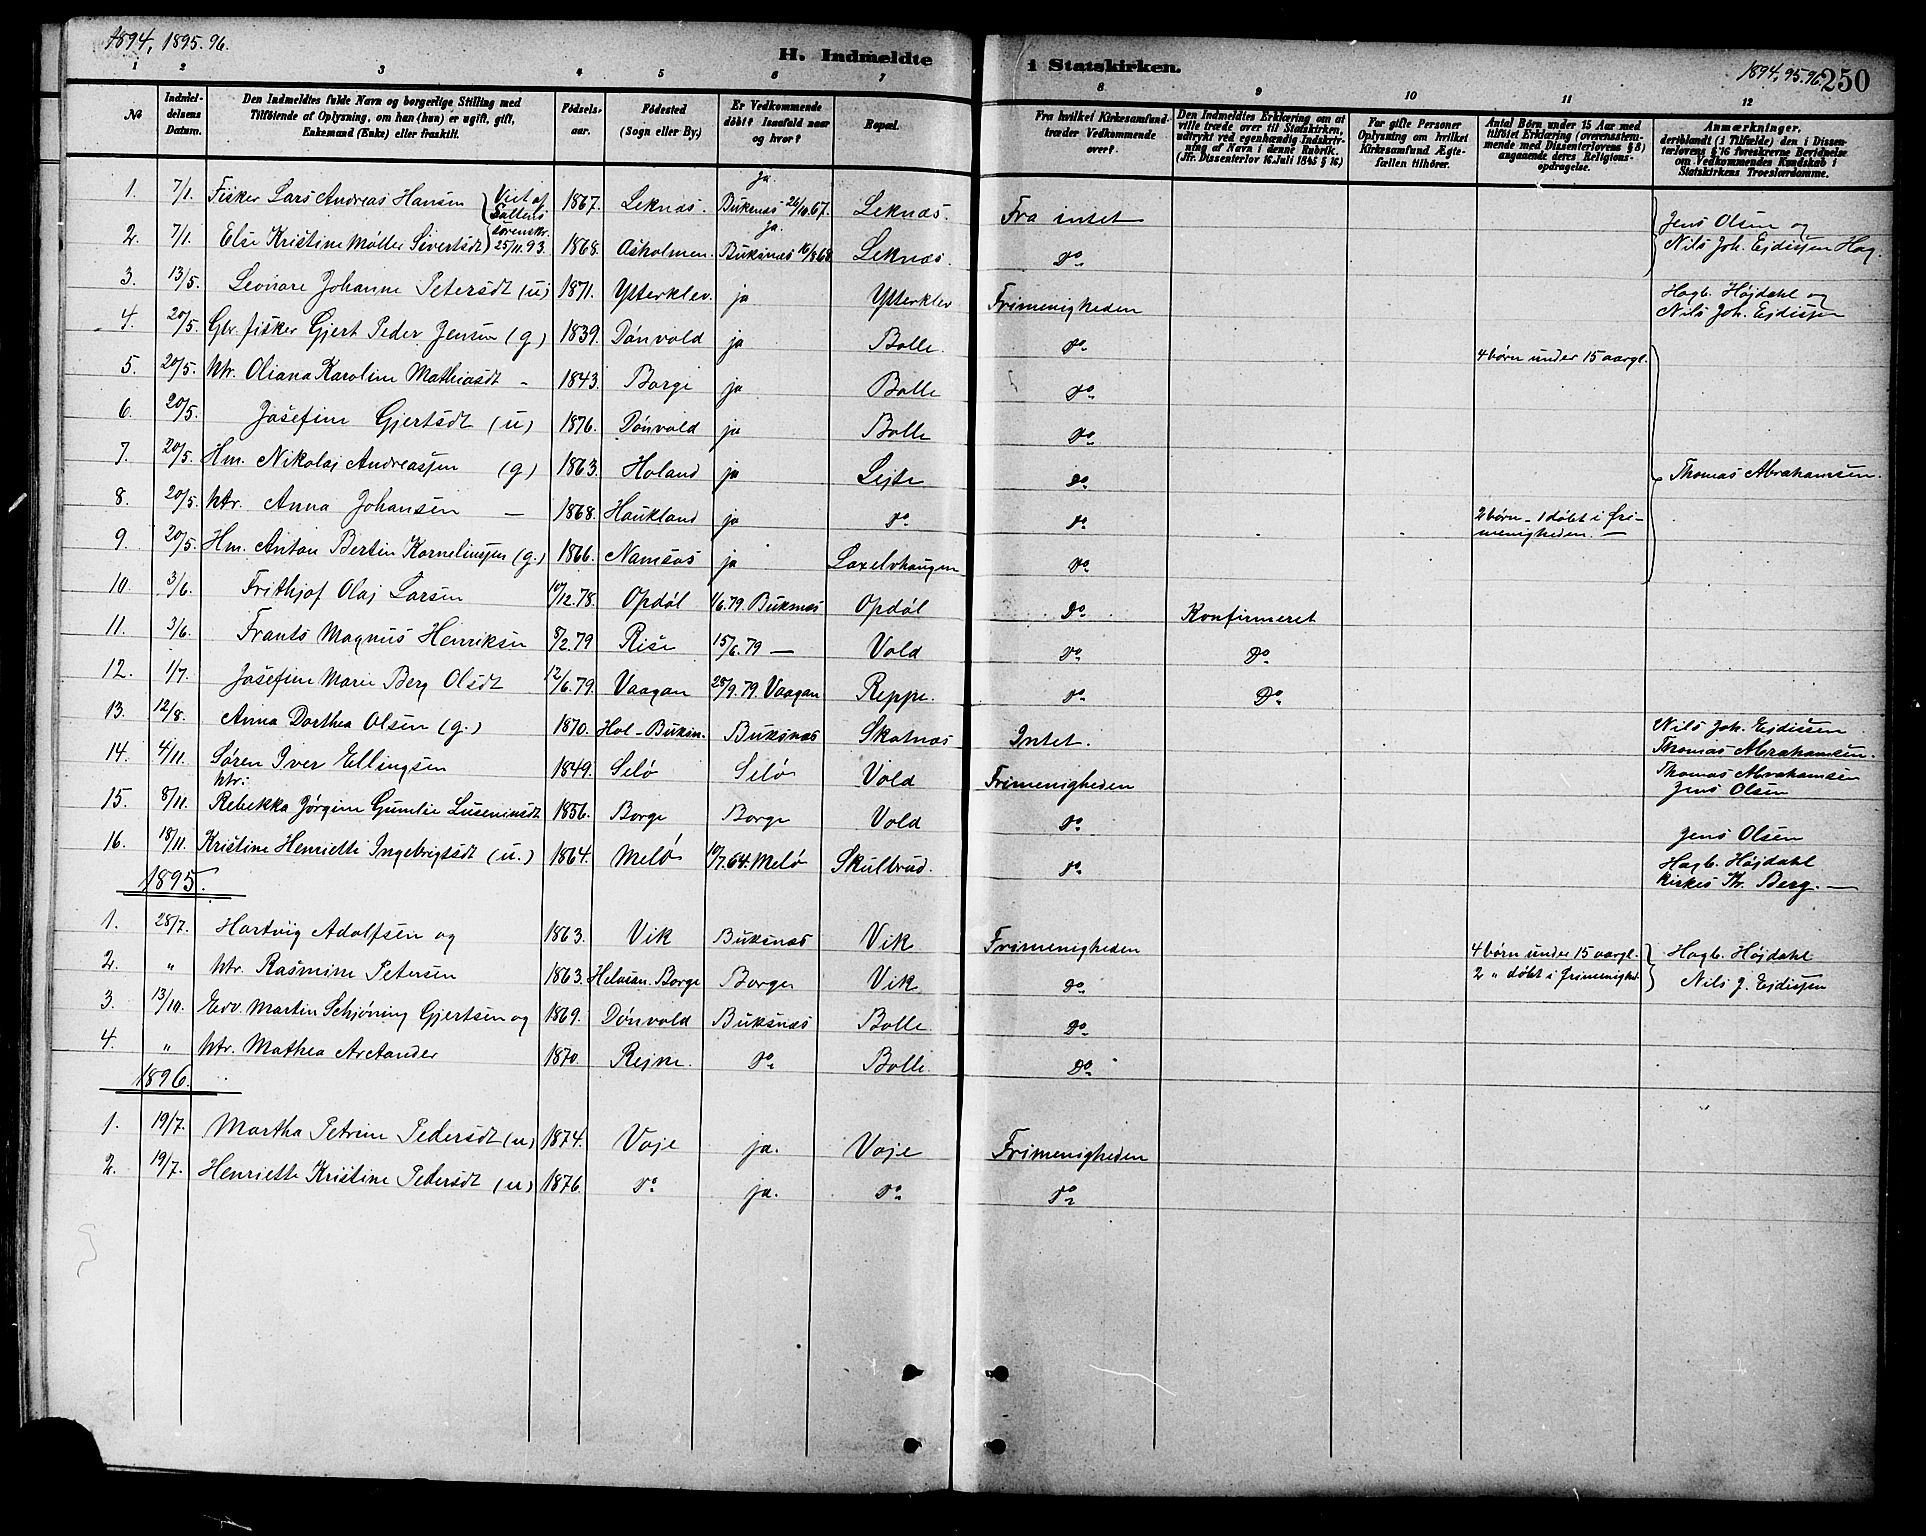 1894, 1895. 96.
H. Indmeldte i Statskirken.
1894, 95. 96. 250
1 2 3 4 5 6 7 8 9 10 11 12
No
Indmeldelsens Datum.
Den Indmeldtes fulde Navn og borgerlige Stilling med Tilföiende af Oplysning, om han (hun) er ugift, gift, Enkemand (Enke) eller fraskilt.
Födselsaar.
Födested (Sogn eller By.)
Er Vedkommende döbt? Isaafald naar og hvor?
Bopæl.
Fra hvilket Kirkesamfund træder Vedkommende over?
Den Indmeldtes Erklæring om at ville træde over til Statskirken, udtrykt ved egenhændig Indskrivning af Navn i denne Rubrik. (Jfr. Dissenterlov 16. Juli 1845 § 16)
For gifte Personer Oplysning om hvilket Kirkesamfund Ægtefællen tilhörer.
Antal Börn under 15 Aar med tilföiet Erklæring (overensstemmende med Dissenterlovens § 8) angaaende deres Religionsopdragelse.
Anmærkninger, deriblandt (i Tilfælde) den i Dissenterlovens § 16 foreskrevne Bevidnelse om Vedkommendes Kundskab i Statskirkens Troeslærdomme.
1. 7/1. Fisker Lars Andreas Hansen { Viet af Saltens sorenskr. 25/11.93 1867. Leknæs. Ja. Buksnæs 26/10.67. Leknæs. Fra intet { Jens Olsen og
2. 7/1. Else Kristine Møller Sivertsdt 1868. Asholmen. Ja. Buksnæs 16/8 68. Leknæs. Do Nils Joh. Ejdissen Hag.
3. 13/5. Leonore Johanne Petersdt (u) 1871. Ytterklev. ja Ytterklev Frimenigheden Hagb. Højdahl og Nils Joh. Ejdissen
4. 20/5. Gbr. fisker Gjert Peder Jensen (g) 1839. Dønvold ja Bolle. Do 4 børn under 15 aargl.
5. 20/5. Htr. Oliana Karoline Mathiasdt - 1843. Borge ja Bolle Do
6. 20/5. Josefine Gjertsdt (u) 1876. Dønvold ja Bolle Do
7. 20/5. Hm. Nikolaj Andreassen (g) 1863. Holand ja Lejte Do } Thomas Abrahamsen.
8. 20/5. Htr. Anna Johansen — 1868. Haukland ja Do Do 2 børn - 1 døbt i frimenigheden. —
9. 20/5. Hm. Anton Bertin Korneliussen (g.) 1866. Namsos ja Laxelvhaugen Do
10. 3/6. Frithjof Olaj Larsen 10/12.78. Opdøl 1/6.79. Buksnæs Opdøl Do Konfirmeret
11. 3/6. Frants Magnus Henriksen 8/2.79 Rise 15/6.79 — Vold Do Do
12. 1/7. Josefine Marie Berg Olsdt 12/6.79. Vaagan 28/9.79. Vaagan Reppe. Do Do
13. 12/8. Anna Dorthea Olsen (g.) 1870. Hol-Buksn. Buksnæs Skotnæs Intet. Nils Joh. Ejdissen Thomas Abrahamsen.
14. 4/11. Søren Iver Ellingsen 1849. Selø Selø Vold Frimenigheden Thomas Abrahamsen Jens Olsen
15. 8/11. Htr: Rebekka Jørgine Gunelie 1856. Borge Borge Vold Do
16. 18/11. Kristine Henriette Ingebrigtsdt (u.) 1864. Melø 10/7.64. Melø Skulbrud. Do Jens Olsen Hagb. Højdahl Kirkes Kr. Berg. —
1895.
1. 28/7. Hartvig Adolfsen og 1863. Vik Buksnæs Vik Frimenigheden 4 børn under 15 aargl. } Hagb. Højdahl
2. " Htr. Rasmine Petersen 1863. Borge Borge Vik Do 2 " døbt i frimenighed. Nils J. Ejdissen
3. 13/10. Edv. Martin Schjøning Gjertsen og 1869. Dønvold Buksnæs Bolle Do
4. " Htr. Mathea Arctander 1870. Rejne. Do Bolle Do
1896.
1. 19/7. Martha Petrine Pedersdt (u) 1874. Voje ja. Voje Frimenigheden
2. 19/7. Henriette Kristine Pedersdt (u) 1876. Do ja. Do Do